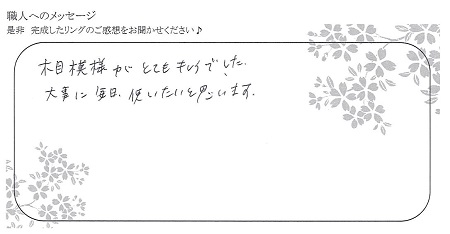 職人へのメッセージ
是非 完成したリングのご感想をお聞かせください♪
木目模様がとてもキレイでした。
大事に毎日、使いたいと思います。